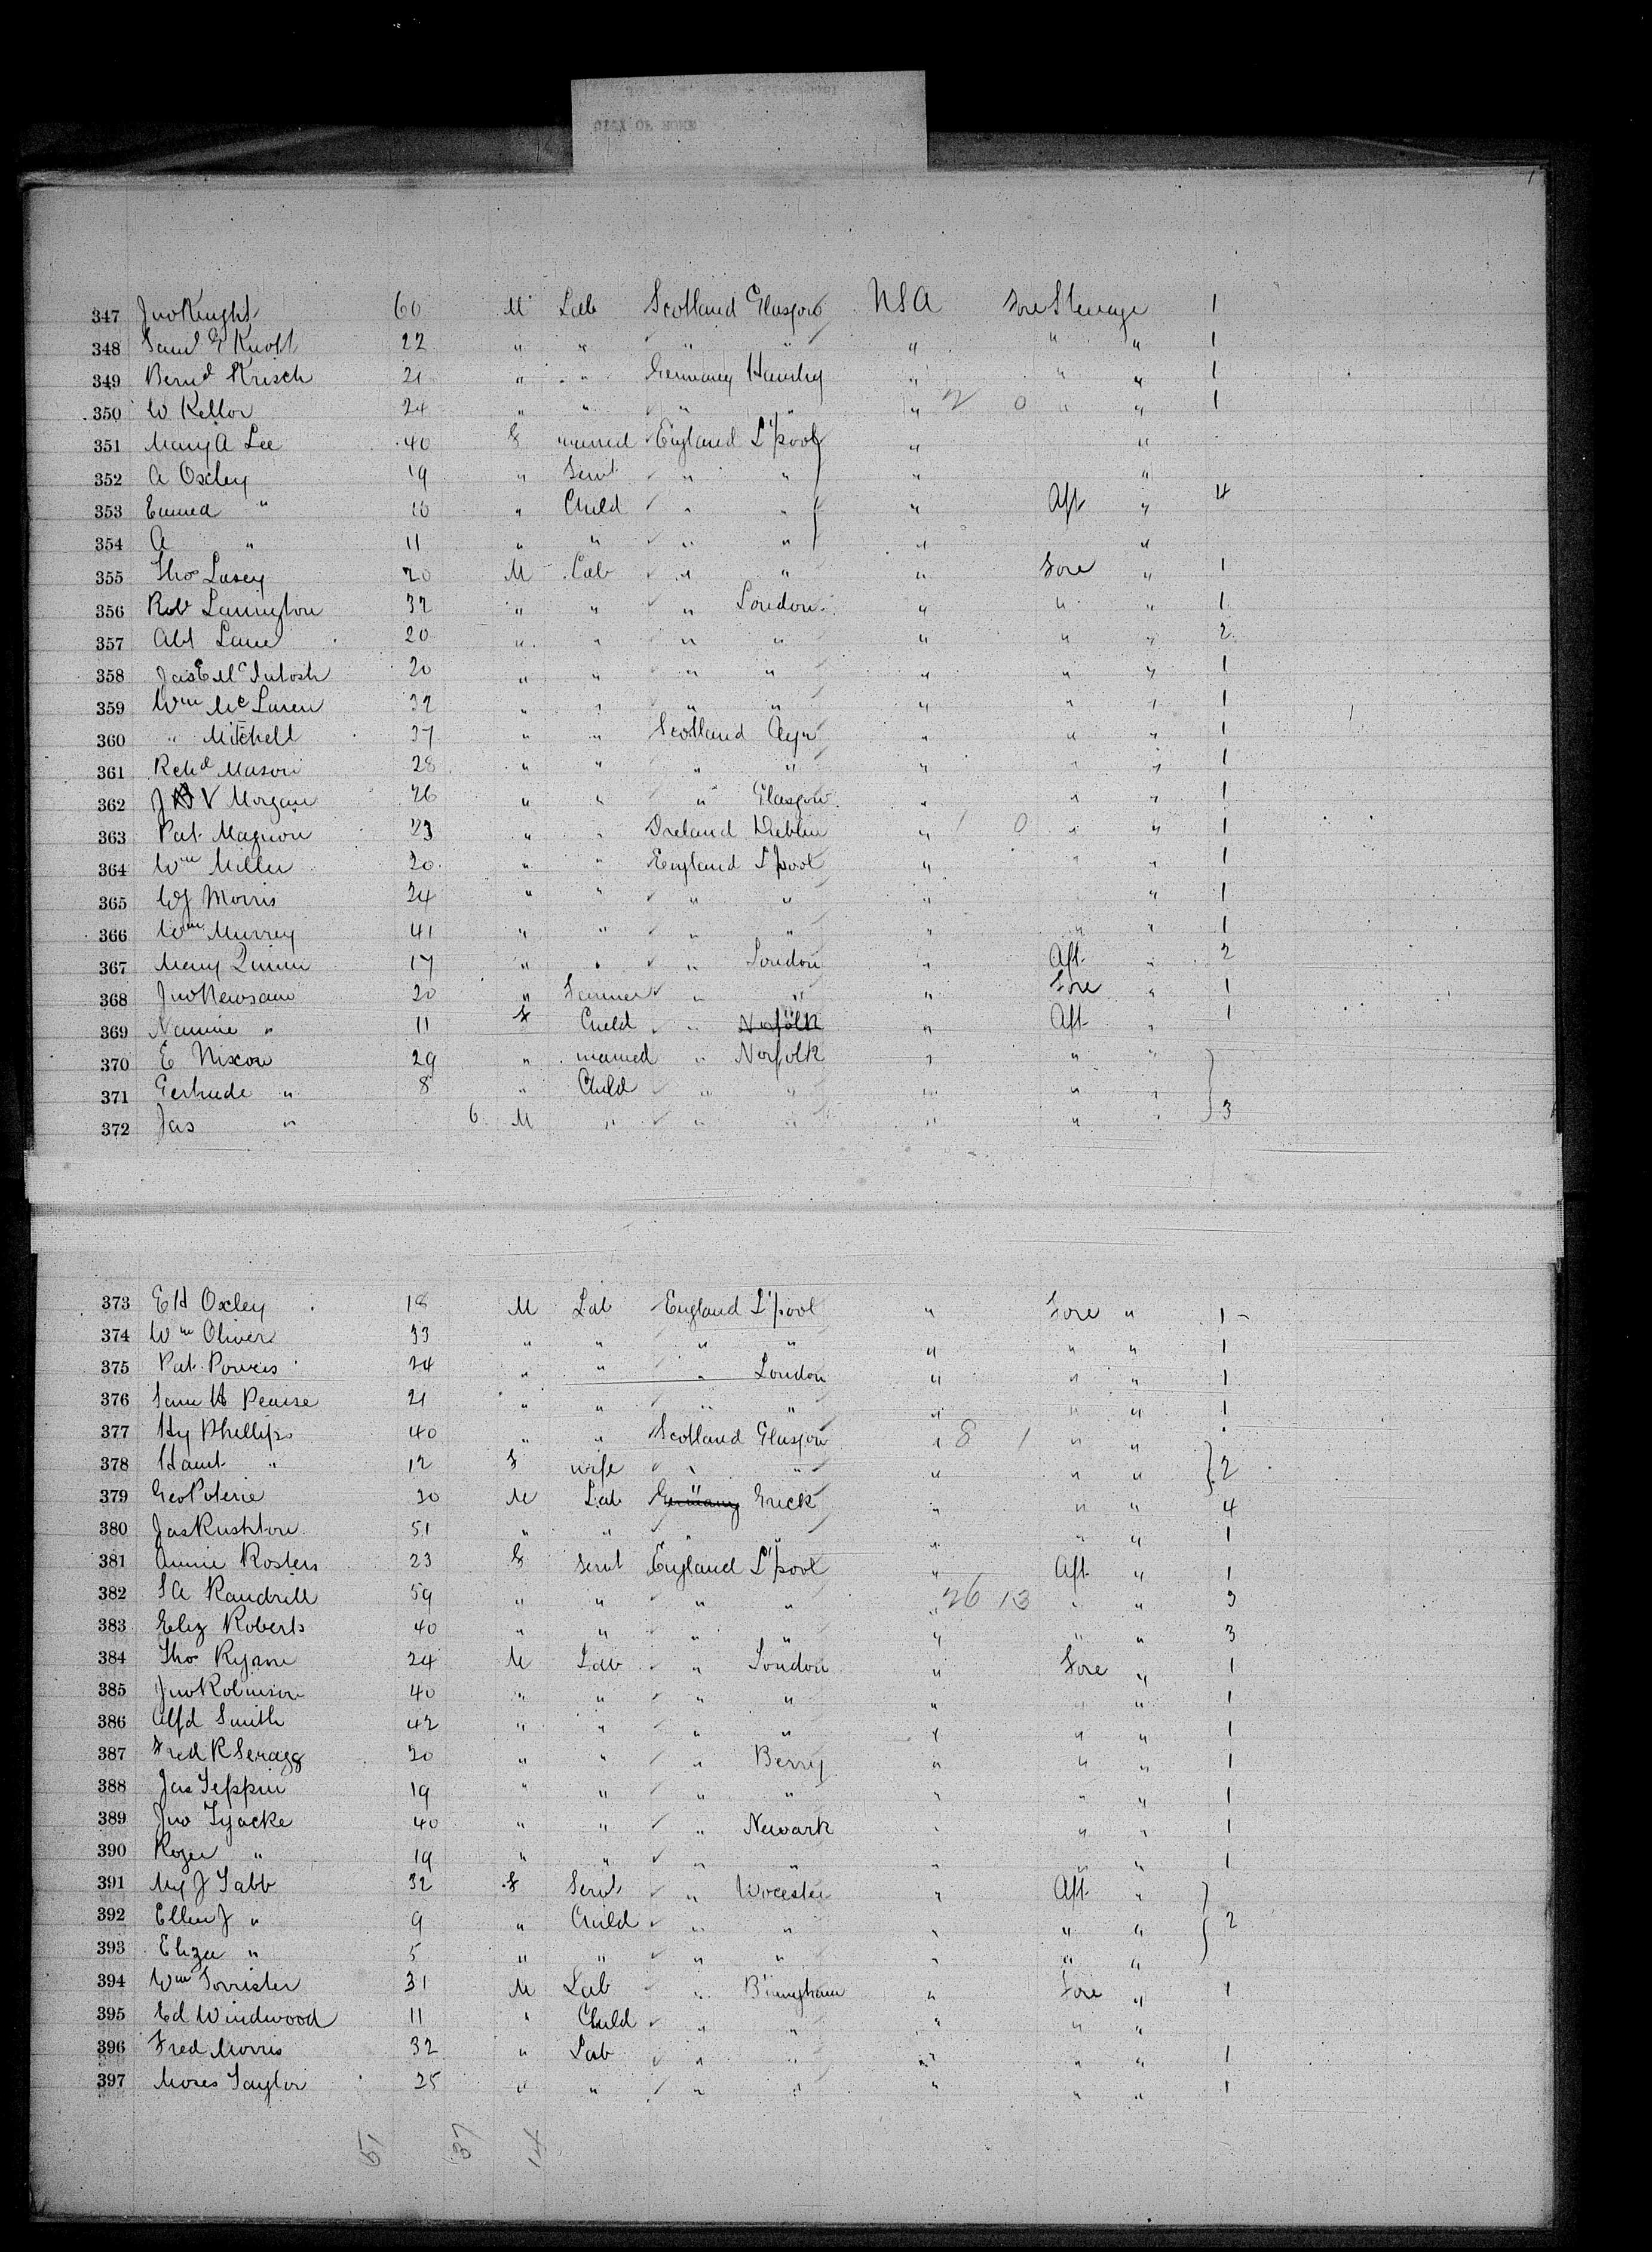 CITY OF ROME
347 Jno Knight 60 M Lab Scotland Glasgow USA Fore Steerage 1
348 Saml E Knott 22 " " " " " " " 1
349 Bernd Krisch 21 " " Germany " " " 1
350 W Kellor 24 " " " " " 2 0 " " 1
351 Mary A Lee 40 F married England L'pool " "
352 A Oxley 19 " Servt " " " "
353 Emma " 10 " Child " " " Aft " 4
354 A " 11 " " " " " "
355 Thos Lasey 20 M Lab " " " Fore " 1
356 Rob Lannington 32 " " " London " " " 1
357 Abt Lane 20 " " " " " " " 2
358 Jas E McIntosh 20 " " " " " " " 1
359 Wm McLaren 32 " " " " " " " 1
360 " Mitchell 37 " " Scotland Ayr " " " 1
361 Rchd Mason 28 " " " " " " " 1
362 J V Morgan 26 " " " Glasgow " " " 1
363 Pat Magnon 23 " " Ireland Dublin " 1 0 " " 1
364 Wm Miller 20 " " England L'pool " " " 1
365 Morris 24 " " " " " " 1
366 Wm Murrey 41 " " " " " " " 1
367 Mary Quinn 17 " " " London " Aft " 2
368 Jno Newsam 20 " Farmer " " " Fore " 1
369 Nannie " 11 F Child " Norfolk " Aft " 1
370 E Nixon 29 " married " Norfolk " " "
371 Gertrude " 8 " Child " " " " "
372 Jas " 6 M " " " " " " 3
373 E H Oxley 18 M Lab England L'pool " Fore " 1
374 Wm Oliver 33 " " " " " " " 1
375 Pat Powers 24 " " " London " " " 1
376 Sam H Pearse 21 " " " " " " " 1
377 Hy Phillips 40 " " Scotland Glasgow " 8 1 " "
378 " 12 F wife " " " " " 2
379 Geo Poterie 30 M Lab Germany " " " 4
380 Jas Rushton 51 " " " " " 1
381 Annie Rosters 23 F Servt England L'pool " Aft " 1
382 S A Randrill 59 " " " " " 26 13 " " 3
383 Eliz Roberts 40 " " " " " " " 3
384 Thos Ryan 24 M Lab " London " Fore " 1
385 Jno Robinson 40 " " " " " " " 1
386 Alfd Smith 42 " " " " " " " 1
387 Fred R Scragg 20 " " " Berry " " " 1
388 Jas Teppin 19 " " " " " " " 1
389 Jno Tyacke 40 " " " Newark " " " 1
390 Roger " 19 " " " " " " " 1
391 My J Tabb 32 F Servt " Wocester " Aft "
392 Ellen J " 9 " Child " " " " " 2
393 Eliza " 5 " " " " " " "
394 Wm Torrister 31 M Lab " B'mingham " Fore " 1
395 Ed Windwood 11 " Child " " " " "
396 Fred Morris 32 " Lab " " " " " 1
397 Moses Taylor 25 " " " " " " " 1
51 37 14